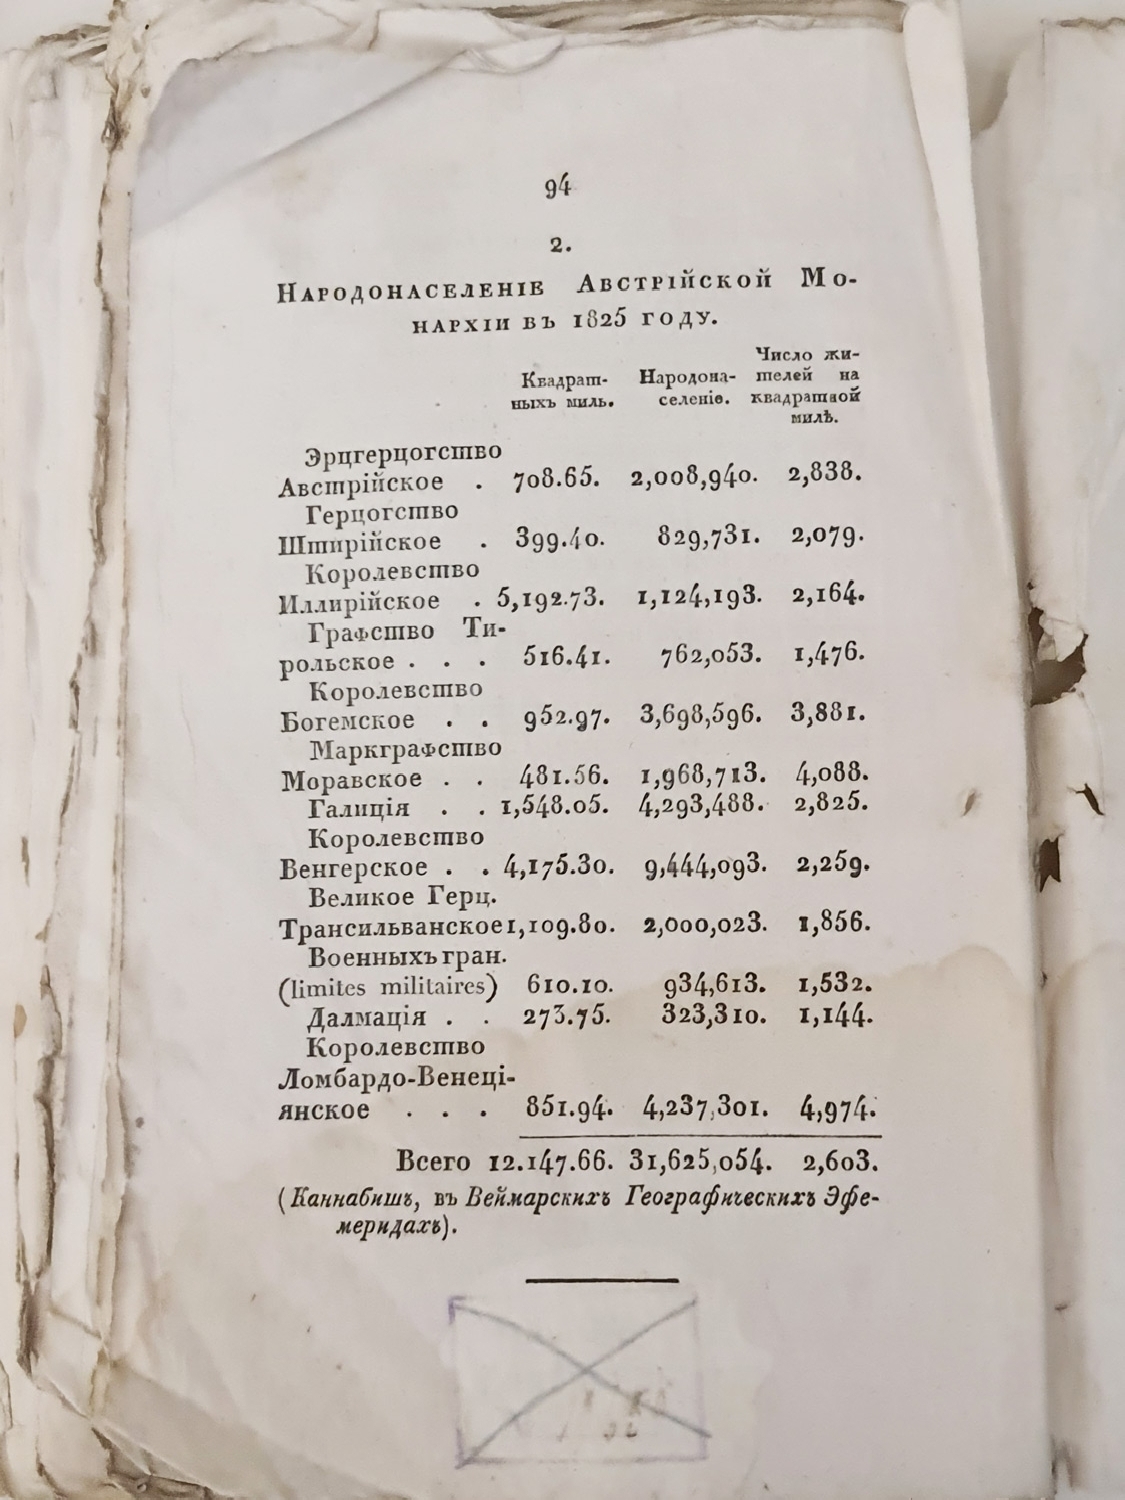 94
2.
Народонаселеніе Австрійской Мо-
нархіи въ 1825 году.
Квадрат-
ныхъ миль.
Народона-
селеніе.
Число жи-
телей на
квадратной
милѣ.
Эрцгерцогство
Австрійское . 708.65. 2,008,940. 2,838.
Герцогство
Штирійское . 399.40. 829,731. 2,079.
Королевство
Иллирійское . 5,192.73. 1,124,193. 2,164.
Графство Ти-
рольское . . . 516.41. 762,053. 1,476.
Королевство
Богемское . . 952.97. 3,698,596. 3,881.
Маркграфство
Моравское . . 481.56. 1,968,713. 4,088.
Галиція . . 1,548.05. 4,293,488. 2,825.
Королевство
Венгерское . . 4,175.30. 9,444,093. 2,259.
Великое Герц.
Трансильванское 1,109.80. 2,000,023. 1,856.
Военныхъ гран.
(limites militaires) 610.10. 934,613. 1,532.
Далмація . . 273.75. 323,310. 1,144.
Королевство
Ломбардо-Венеці-
янское . . . 851.94. 4,237,301. 4,974.
Всего 12.147.66. 31,625,054. 2,603.
(Каннабишъ, въ Веймарскихъ Географическихъ Эфе-
меридахъ).